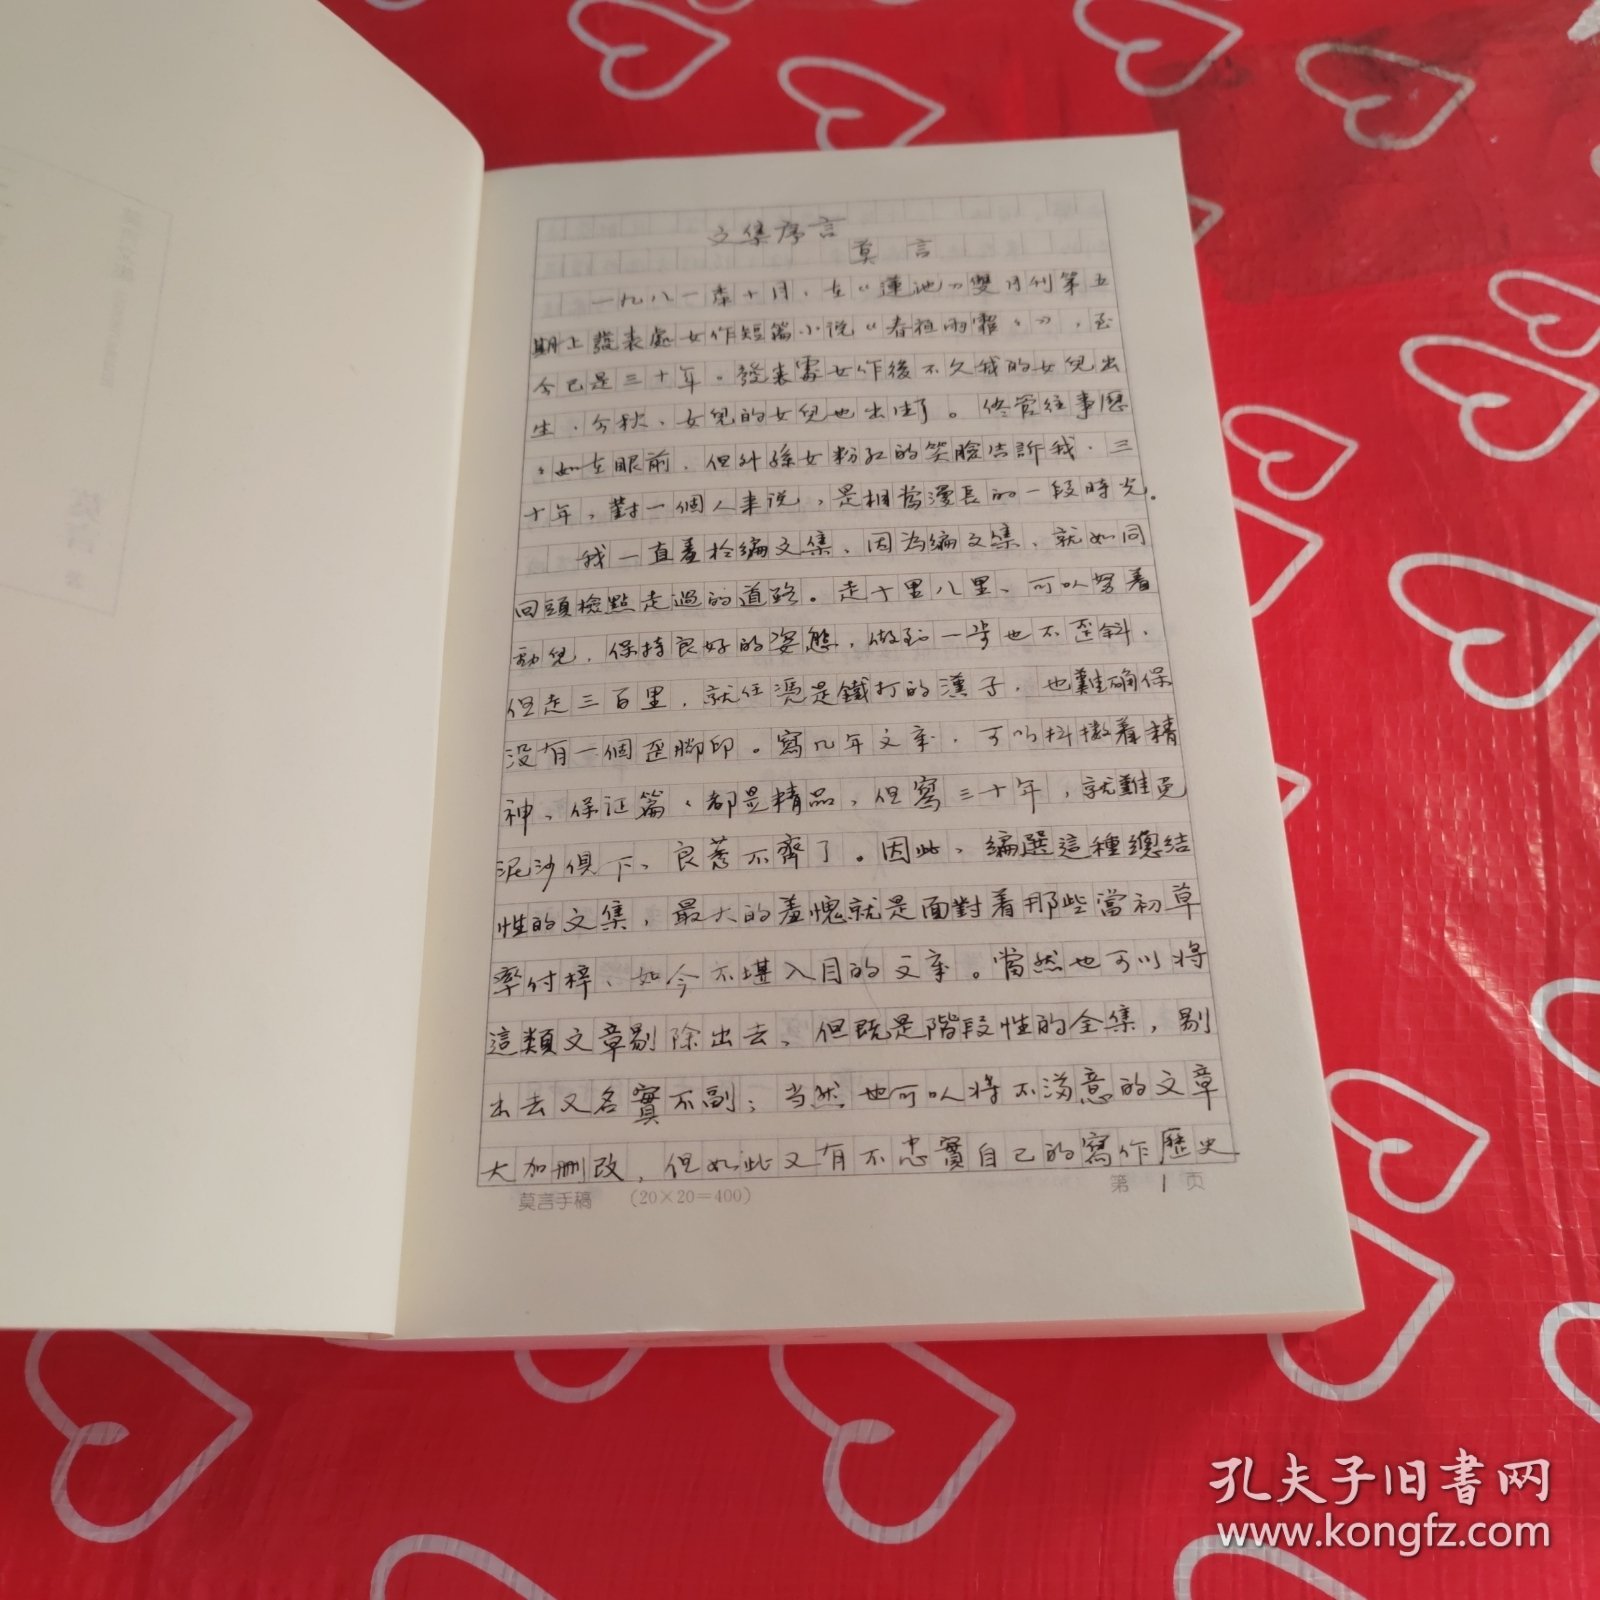 文集序言
莫言
一九八一年十月，在《蓮池》雙月刊第五
期上發表處女作短篇小说《春夜雨霏々》，至
今已是三十年。發表處女作後不久我的女兒出
生，今秋，女兒的女兒也出生了。儘管往事歷
々如在眼前，但外孫女粉红的笑臉告訴我，三
十年，對一個人来说，是相當漫長的一段時光。
我一直羞於编文集，因为编文集，就如同
回頭檢點走過的道路。走十里八里，可以努着
勁兒，保持良好的姿態，做到一步也不歪斜，
但走三百里，就任凭是鐵打的漢子，也難确保
没有一個歪脚印。寫几年文章，可以抖擻着精
神，保证篇々都是精品，但寫三十年，就難免
泥沙俱下，良莠不齊了。因此，编選這種總结
性的文集，最大的羞愧就是面對着那些當初草
率付梓、如今不堪入目的文章。當然也可以将
這類文章剔除出去，但既是階段性的全集，剔
出去又名實不副；当然也可以将不满意的文章
大加删改，但如此又有不忠實自己的寫作歷史
莫言手稿 (20×20=400) 第1页
孔夫子旧书网
www.kongfz.com